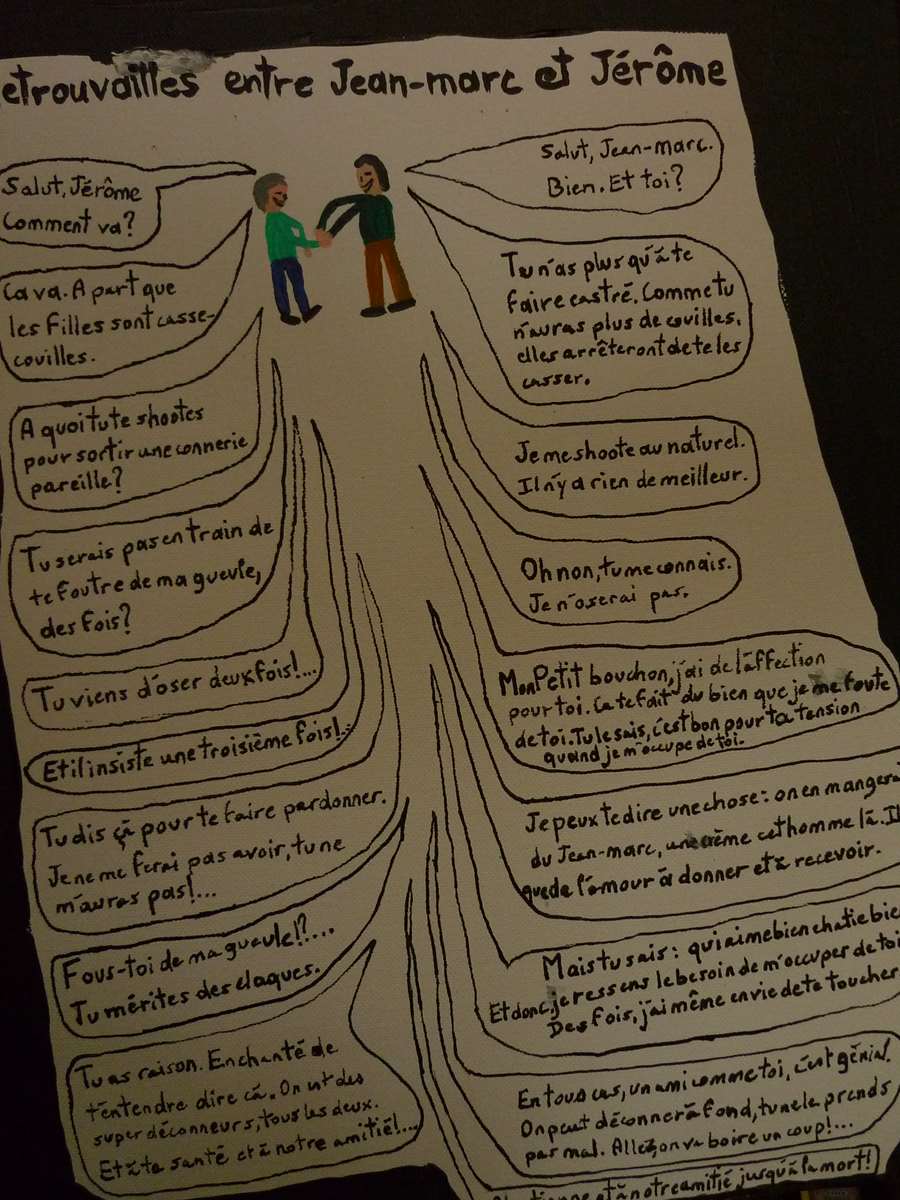 etrouvailles entre Jean-marc et Jérôme
Salut, Jérôme
Comment va?
Salut, Jean-marc.
Bien. Et toi?
Ca va. A part que
les filles sont casse-
couilles.
Tu n'as plus qu'à te
faire castré. Comme tu
n'auras plus de couilles,
elles arrêteront de te les
casser.
A quoi tu te shootes
pour sortir une connerie
pareille?
Je me shoote au naturel.
Il n'y a rien de meilleur.
Tu serais pas en train de
te foutre de ma gueule,
des fois?
Oh non, tu me connais.
Je n'oserai pas.
Tu viens d'oser deux fois!...
Mon Petit bouchon, j'ai de l'affection
pour toi. Ca te fait du bien que je me foute
de toi. Tu le sais, c'est bon pour ta tension
quand je m'occupe de toi.
Et il insiste une troisième fois!..
Je peux te dire une chose: on en mangera
du Jean-marc, une crème cet homme là. Il
que de l'amour à donner et à recevoir.
Tu dis ça pour te faire pardonner.
Je ne me ferai pas avoir, tu ne
m'auras pas!...
Mais tu sais: qui aime bien chatie bie
Et donc, je ressens le besoin de m'occuper de toi
Des fois, j'ai même envie de te toucher
Fous-toi de ma gueule!?....
Tu mérites des claques.
En tous cas, un ami comme toi, c'est génial.
On peut déconner à fond, tu ne le prends
pas mal. Allez, on va boire un coup!...
Tu as raison. Enchanté de
t'entendre dire ça. On est des
super déconneurs, tous les deux.
Et à ta santé et à notre amitié!...
et à notre amitié jusqu'à la mort!